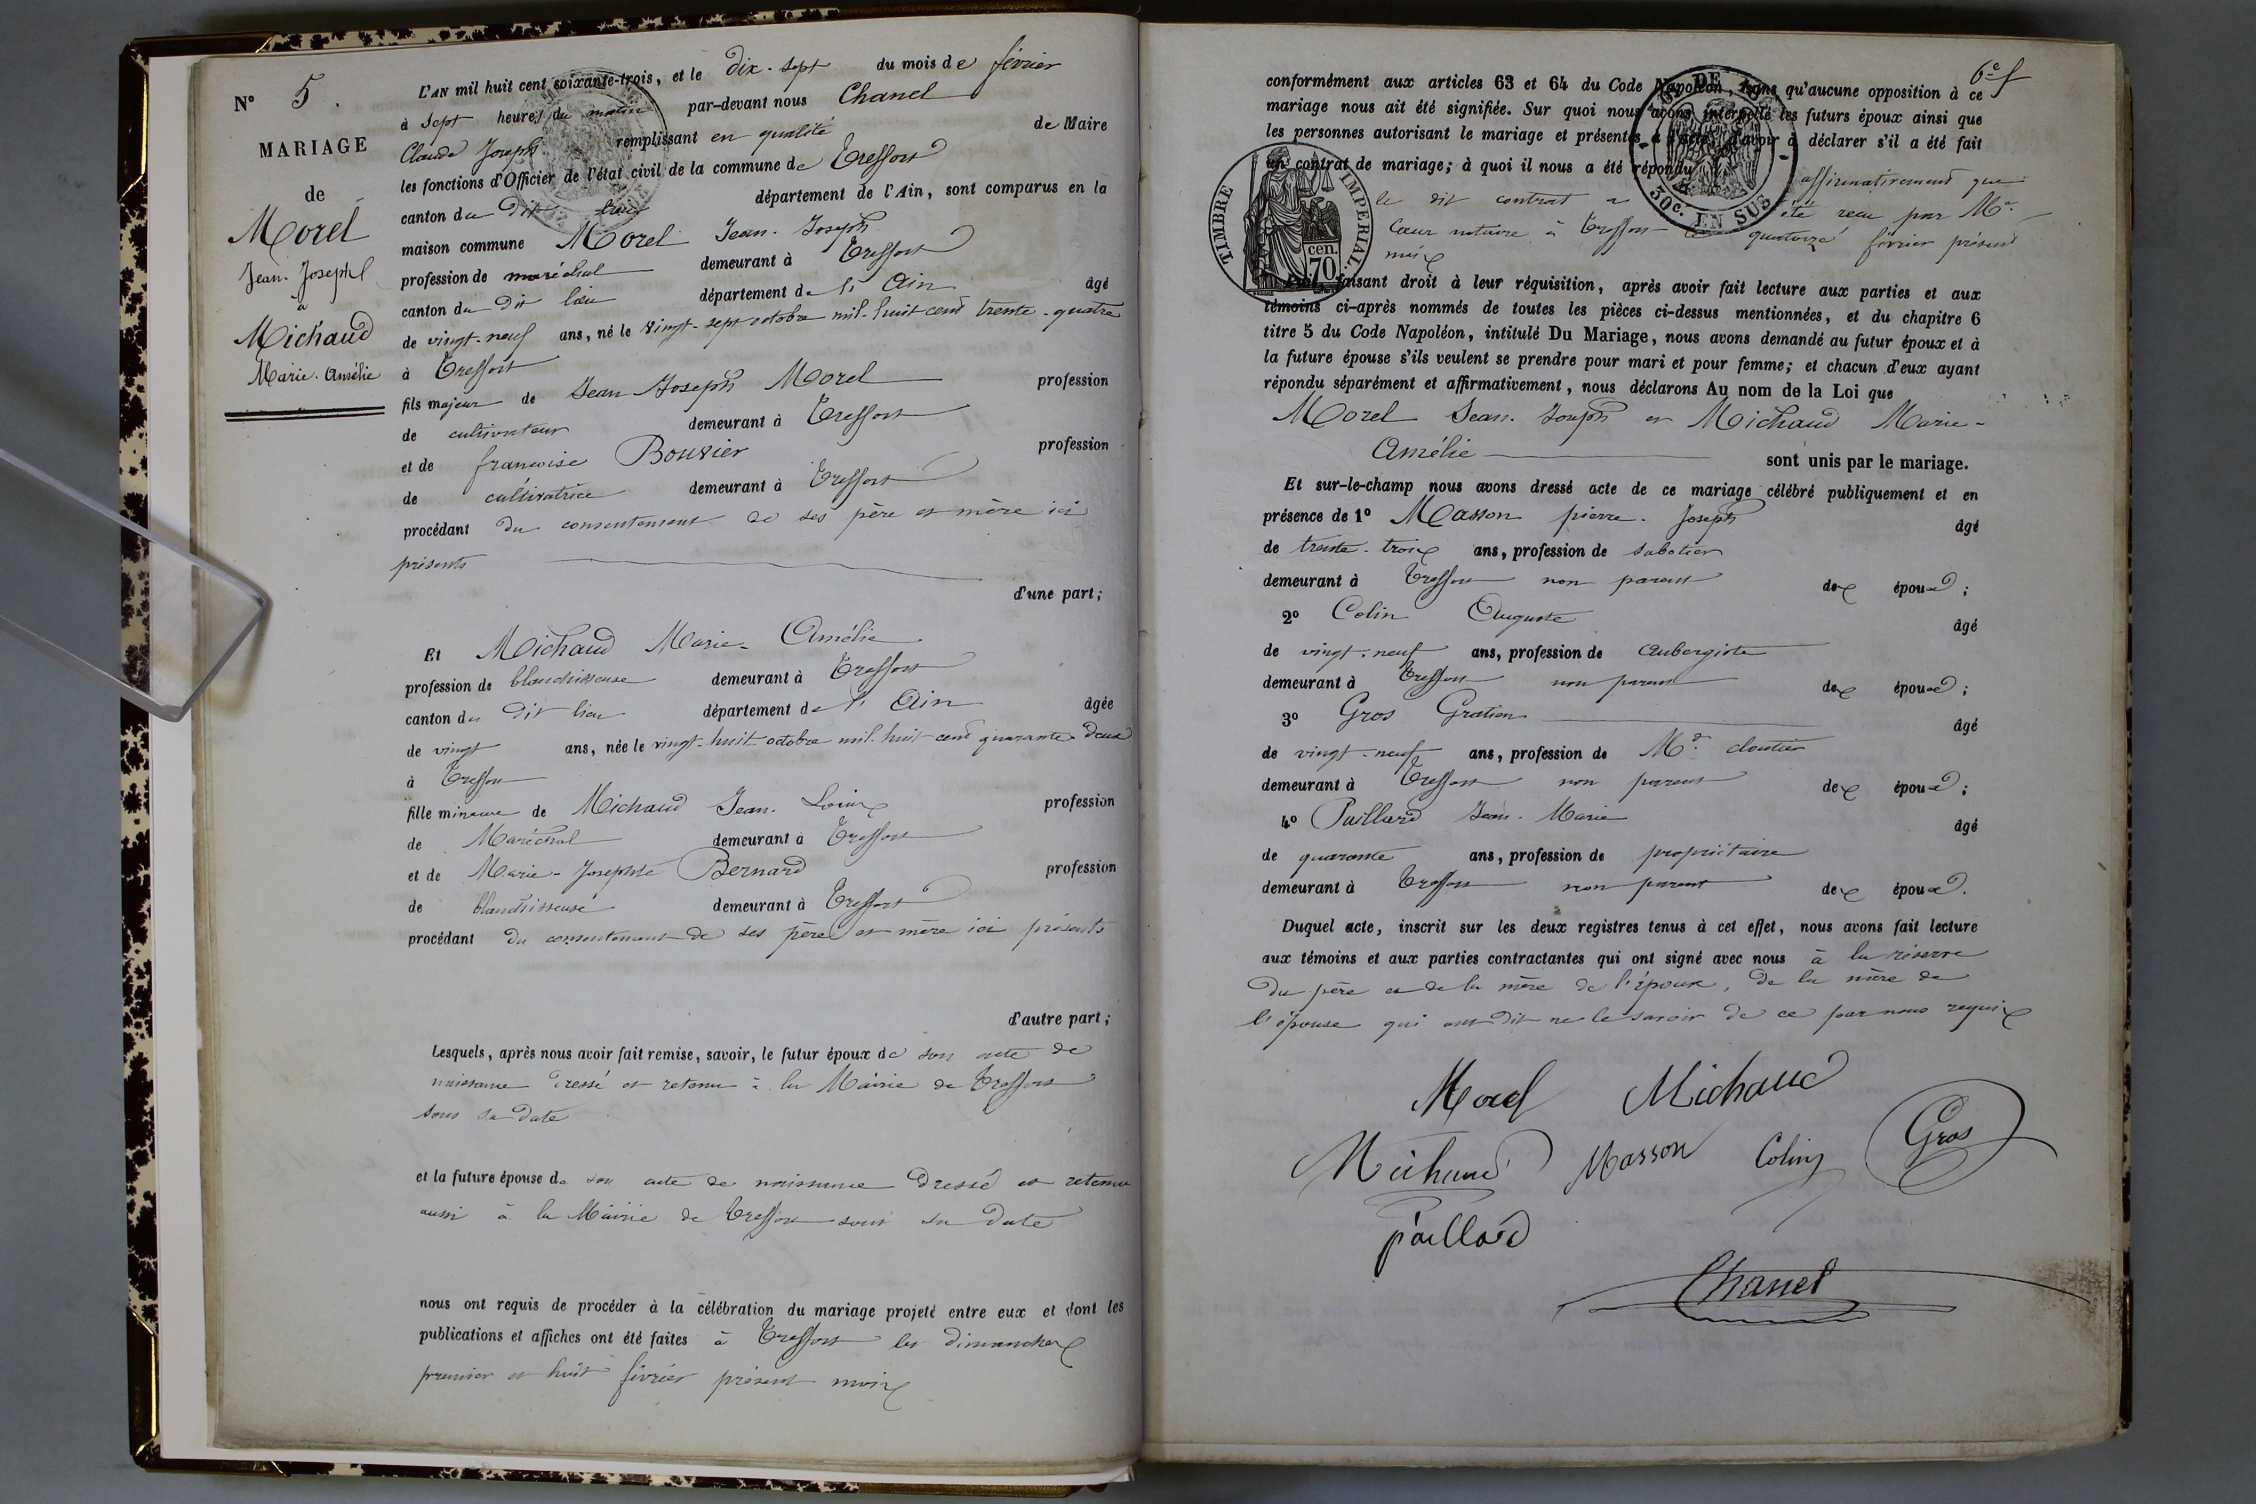 N° 5.
MARIAGE
de
Morel
Jean-Joseph
à
Michaud
Marie-Amélie
L'AN mil huit cent soixante-trois, et le dix-sept du mois de février
à sept heures du matin par-devant nous Chanel
Claude Joseph remplissant en qualité de Maire
les fonctions d'Officier de l'état civil de la commune de Treffort
canton du dit lieu département de l'Ain, sont comparus en la
maison commune Morel Jean-Joseph
profession de maréchal demeurant à Treffort
canton du dit lieu département de l'Ain âgé
de vingt-neuf ans, né le vingt-sept octobre mil-huit cent trente-quatre
à Treffort
fils majeur de Jean Joseph Morel profession
de cultivateur demeurant à Treffort
et de françoise Bouvier profession
de cultivatrice demeurant à Treffort
procédant du consentement de ses père et mère ici
présents
d'une part;
Et Michaud Marie-Amélie
profession de blanchisseuse demeurant à Treffort
canton du dit lieu département de l'Ain âgée
de vingt ans, née le vingt-huit octobre mil-huit cent quarante-deux
à Treffort
fille mineure de Michaud Jean-Louis profession
de Maréchal demeurant à Treffort
et de Marie-Josephte Bernard profession
de blanchisseuse demeurant à Treffort
procédant du consentement de ses père et mère ici présents
d'autre part;
Lesquels, après nous avoir fait remise, savoir, le futur époux de son acte de
naissance dressé et retenu à la Mairie de Treffort
sous sa date
et la future épouse de son acte de naissance dressé et retenu
aussi à la Mairie de Treffort sous sa date
nous ont requis de procéder à la célébration du mariage projeté entre eux et dont les
publications et affiches ont été faites à Treffort les dimanches
premier et huit février présent mois
6e f
conformément aux articles 63 et 64 du Code Napoléon, sans qu'aucune opposition à ce
mariage nous ait été signifiée. Sur quoi nous avons interpellé les futurs époux ainsi que
les personnes autorisant le mariage et présentes à l'acte, d'avoir à déclarer s'il a été fait
un contrat de mariage; à quoi il nous a été répondu affirmativement que
le dit contrat a été reçu par Me
Cœur notaire à Treffort le quatorze février présent
mois
TIMBRE IMPERIAL
70 cen.
DE
30c. EN SUS
faisant droit à leur réquisition, après avoir fait lecture aux parties et aux
témoins ci-après nommés de toutes les pièces ci-dessus mentionnées, et du chapitre 6
titre 5 du Code Napoléon, intitulé Du Mariage, nous avons demandé au futur époux et à
la future épouse s'ils veulent se prendre pour mari et pour femme; et chacun d'eux ayant
répondu séparément et affirmativement, nous déclarons Au nom de la Loi que
Morel Jean-Joseph et Michaud Marie-
Amélie sont unis par le mariage.
Et sur-le-champ nous avons dressé acte de ce mariage célébré publiquement et en
présence de 1° Masson pierre-Joseph âgé
de trente-trois ans, profession de sabotier
demeurant à Treffort non parent des époux;
2° Colin Auguste âgé
de vingt-neuf ans, profession de Aubergiste
demeurant à Treffort non parent des époux;
3° Gros Gratien âgé
de vingt-neuf ans, profession de Md cloutier
demeurant à Treffort non parent des époux;
4° Paillard Jean-Marie âgé
de quarante ans, profession de propriétaire
demeurant à Treffort non parent des époux.
Duquel acte, inscrit sur les deux registres tenus à cet effet, nous avons fait lecture
aux témoins et aux parties contractantes qui ont signé avec nous à la réserve
du père et de la mère de l'époux, de la mère de
l'épouse qui ont dit ne le savoir de ce par nous requis
Morel Michaud
Michaud Masson Colin Gros
paillard
Chanel